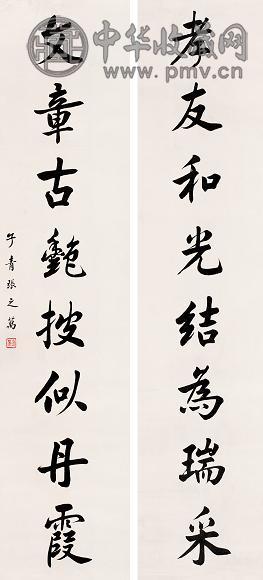 中华收藏网
www.pmv.cn
孝友和光結為瑞采
文章古艷披似丹霞
子青張之萬